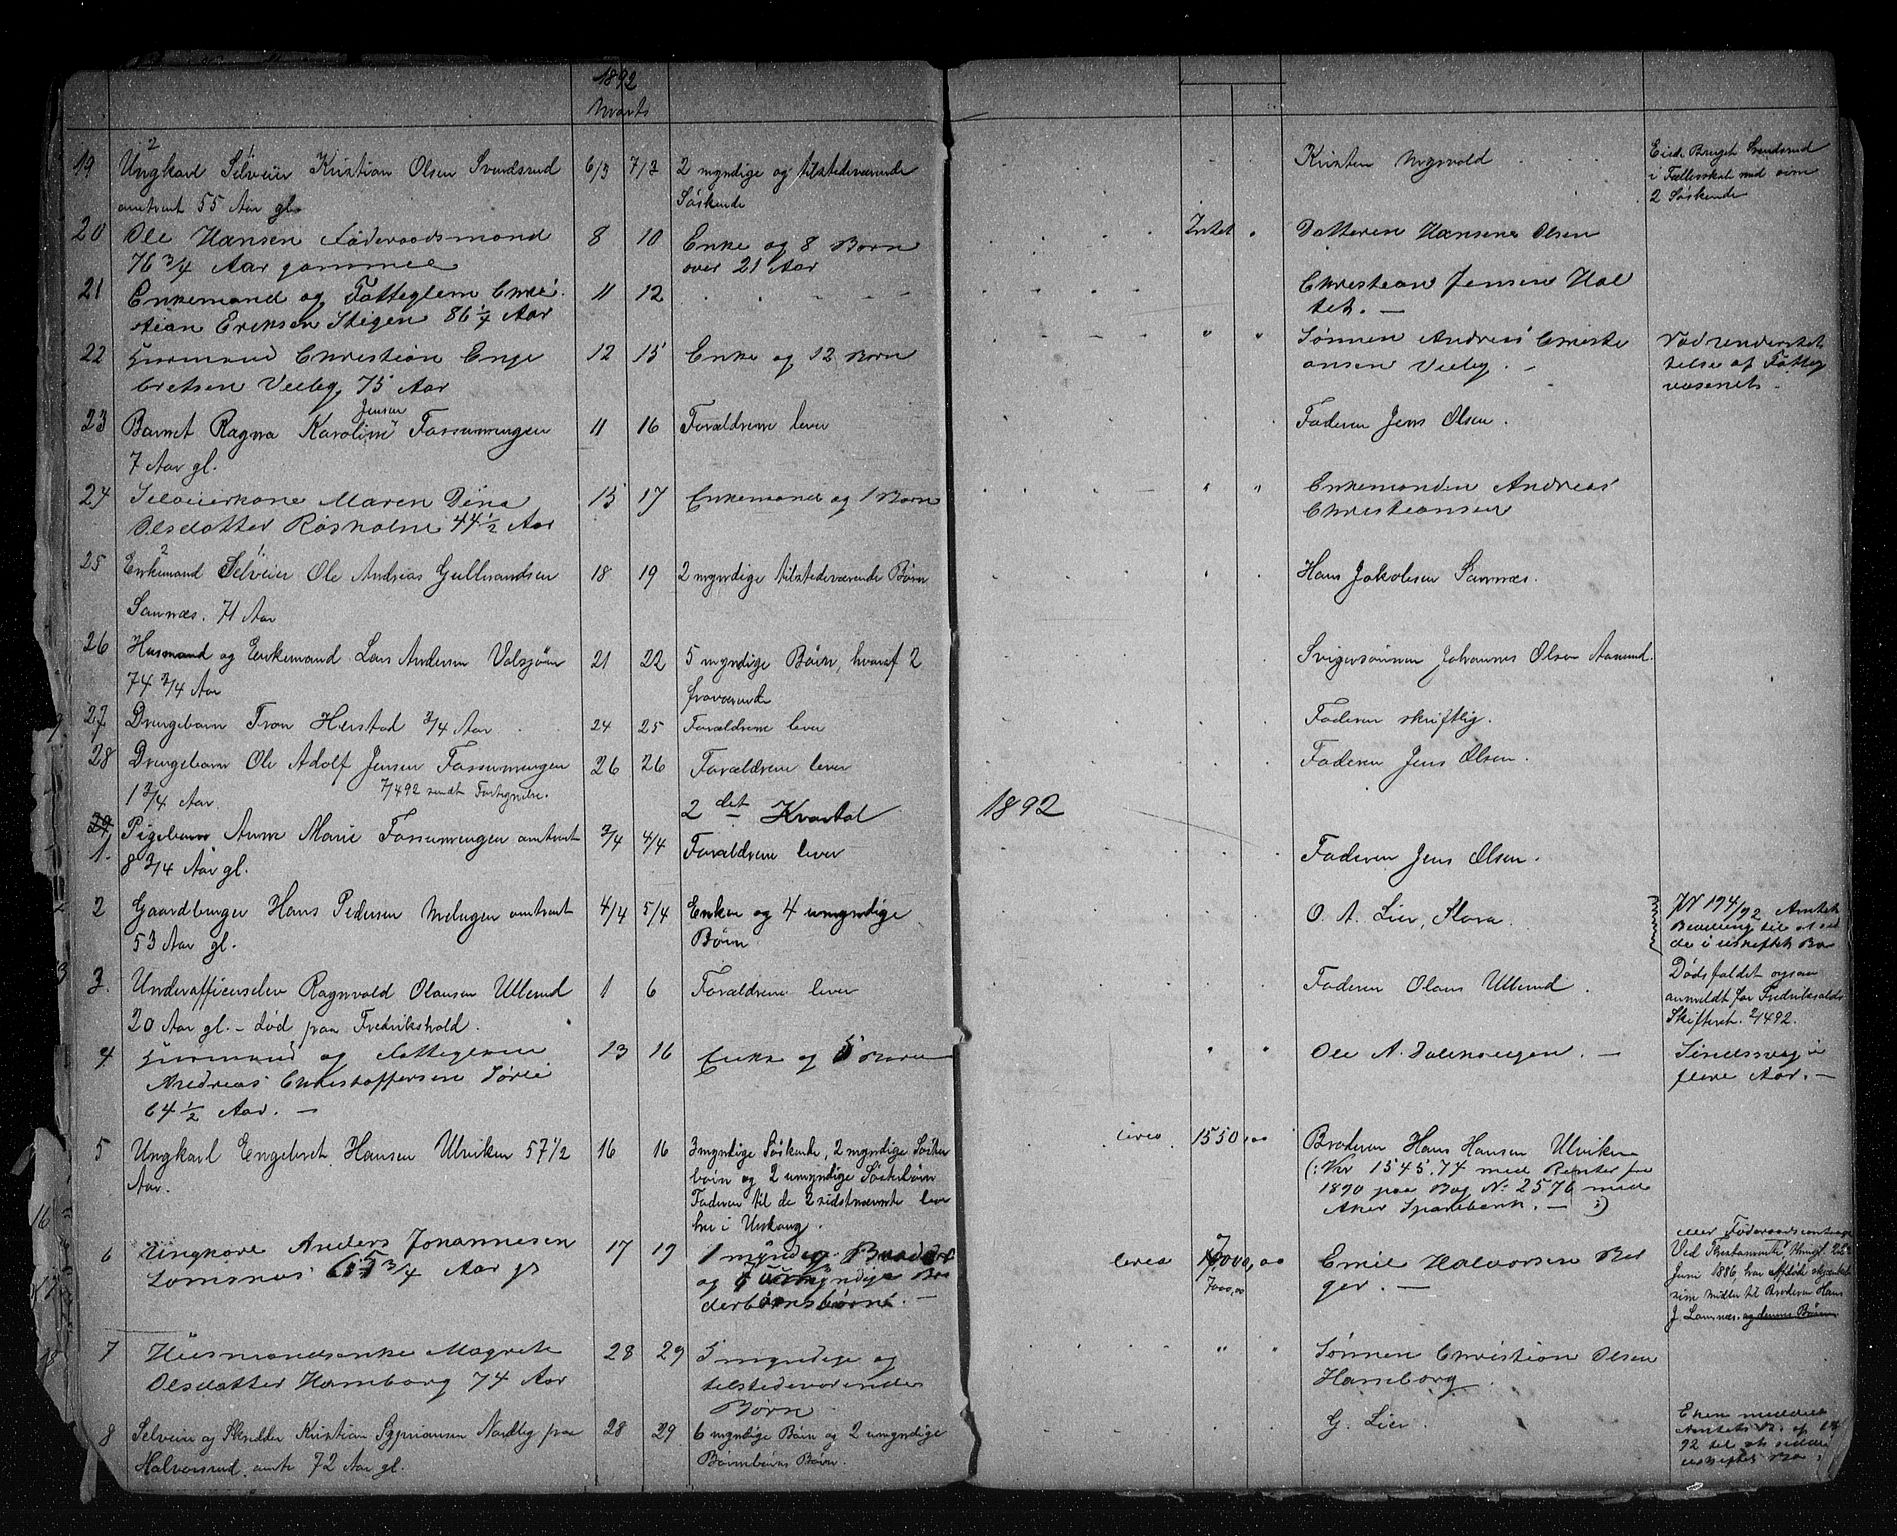 1892
Marts
19 Ungkarl Selveier Kristian Olsen Svendsrud 6/3 7/3 2 myndige og tilstedeværende Kristen Mysvold Eied Bruget Svendsrud
omtrent 55 Aar gl. Söskende i Fællesskab med sine
2 Söskende
20 Ole Hansen Föderaadsmand 8 10 Enke og 8 Børn Intet Datteren Hansine Olsen
76 3/4 Aar gammel over 21 Aar
21 Enkemand og Fatteglem Chri 11 12 Christian Jensen Hol
stian Eriksen Stigen 86 1/4 Aar tet. —
22 Husmand Christian Enge 12 15 Enke og 12 Børn " " Sønnen Andreas Christi Nød understøt
bretsen Veeby 75 Aar ansen Veeby. — telse af Fattig
væsenet. —
23 Barnet Ragna Karoline Jensen Fossumengen 11 16 Forældrene lever Faderen Jens Olsen.
7 Aar gl.
24 Selveierkone Maren Dina 15 17 Enkemand og 1 Barn " " Enkemanden Andreas
Olsdatter Røsholm 44 1/2 Aar Christiansen
25 Enkemand Selveier Ole Andreas Gulbrandsen 18 19 2 myndige tilstedeværende Børn Hans Jakobsen Sannæs.
Sannæs. 71 Aar
26 Husmand og Enkemand Lars Andersen Volsjøen 21 22 5 myndige Börn, hvoraf 2 Svigersönnen Johannes Olsen Aasrud.
74 3/4 Aar fraværende
27 Drengebarn Tron Herstad 3/4 Aar 24 25 Forældrene lever Faderen skriftlig.
28 Drengebarn Ole Adolf Jensen Fossumengen 26 26 Forældrene lever Faderen Jens Olsen.
1 3/4 Aar. 7/4 92 sendt Fortegnelse.
2det Kvartal 1892
29 1. Pigebarn Anne Marie Fossumengen omtrent 3/4 4/4 Forældrene lever Faderen Jens Olsen.
8 3/4 Aar gl.
2 Gaardbruger Hans Pedersen Melugen omtrent 4/4 5/4 Enke og 4 umyndige O. A. Lier, Skara 194/92 Amtets
53 Aar gl. Börn Bevilling til at sid
de i uskiftet Bo
3. Underofficerselev Ragnvald Olausen Ullerud 1 6 Forældrene lever Faderen Olaus Ullerud. Dødsfaldet ogsaa
20 Aar gl. — død paa Fredrikshald. anmeldt for Fredrikshalds
Skifteret. 2/4 92.
4 Husmand og Fattiglem 13 16 Enke og 5 Børn " " Ole A. Dalensengen. — Sindssvag i
Andreas Christoffersen Sörlie flere Aar. —
64 1/2 Aar. —
5 Ungkarl Engebret Hansen Ulviken 57 1/2 16 16 3 myndige Söskende, 2 myndige Söster circa 1550,00 Broderen Hans Hansen Ulviken
Aar. börn og 2 umyndige Sösterbörn (: Kr 1545,74 med Renter fra
Faderen til de 2 sidstnævnte lever 1890 paa Bog No 2576 med
her i Urskoug. Aker Sparebank. — :)
6 Ungkarl Anders Johannesen 17 19 1 myndig Broder circa 7000,00 Emil Halvorsen Bol eller Föderaadscontract
Lomsnæs 65 3/4 Aar gl og umyndige Bro 7000,00 ger. — Ved Testamente
derbørnsbørn. — Juni 1886 har Afdöde
sine midler til Broderen Hans
J. Lomsnæs. og dennes Börn
7 Husmandsenke Magrete 28 29 3 myndige og " " Sønnen Christian Olsen
Olsdatter Hamborg 74 Aar tilstedeværende Hamborg.
Børn
8 Selveier og Skredder Kristian Syprianson Nordby paa 28 29 6 myndige Börn og 2 umyndige G. Lier. Enken meddelt
Halvorsrud. omtr 72 Aar gl. Barnebarns Börn. Amtets B. af
92 til at sidde i
uskiftet Bo